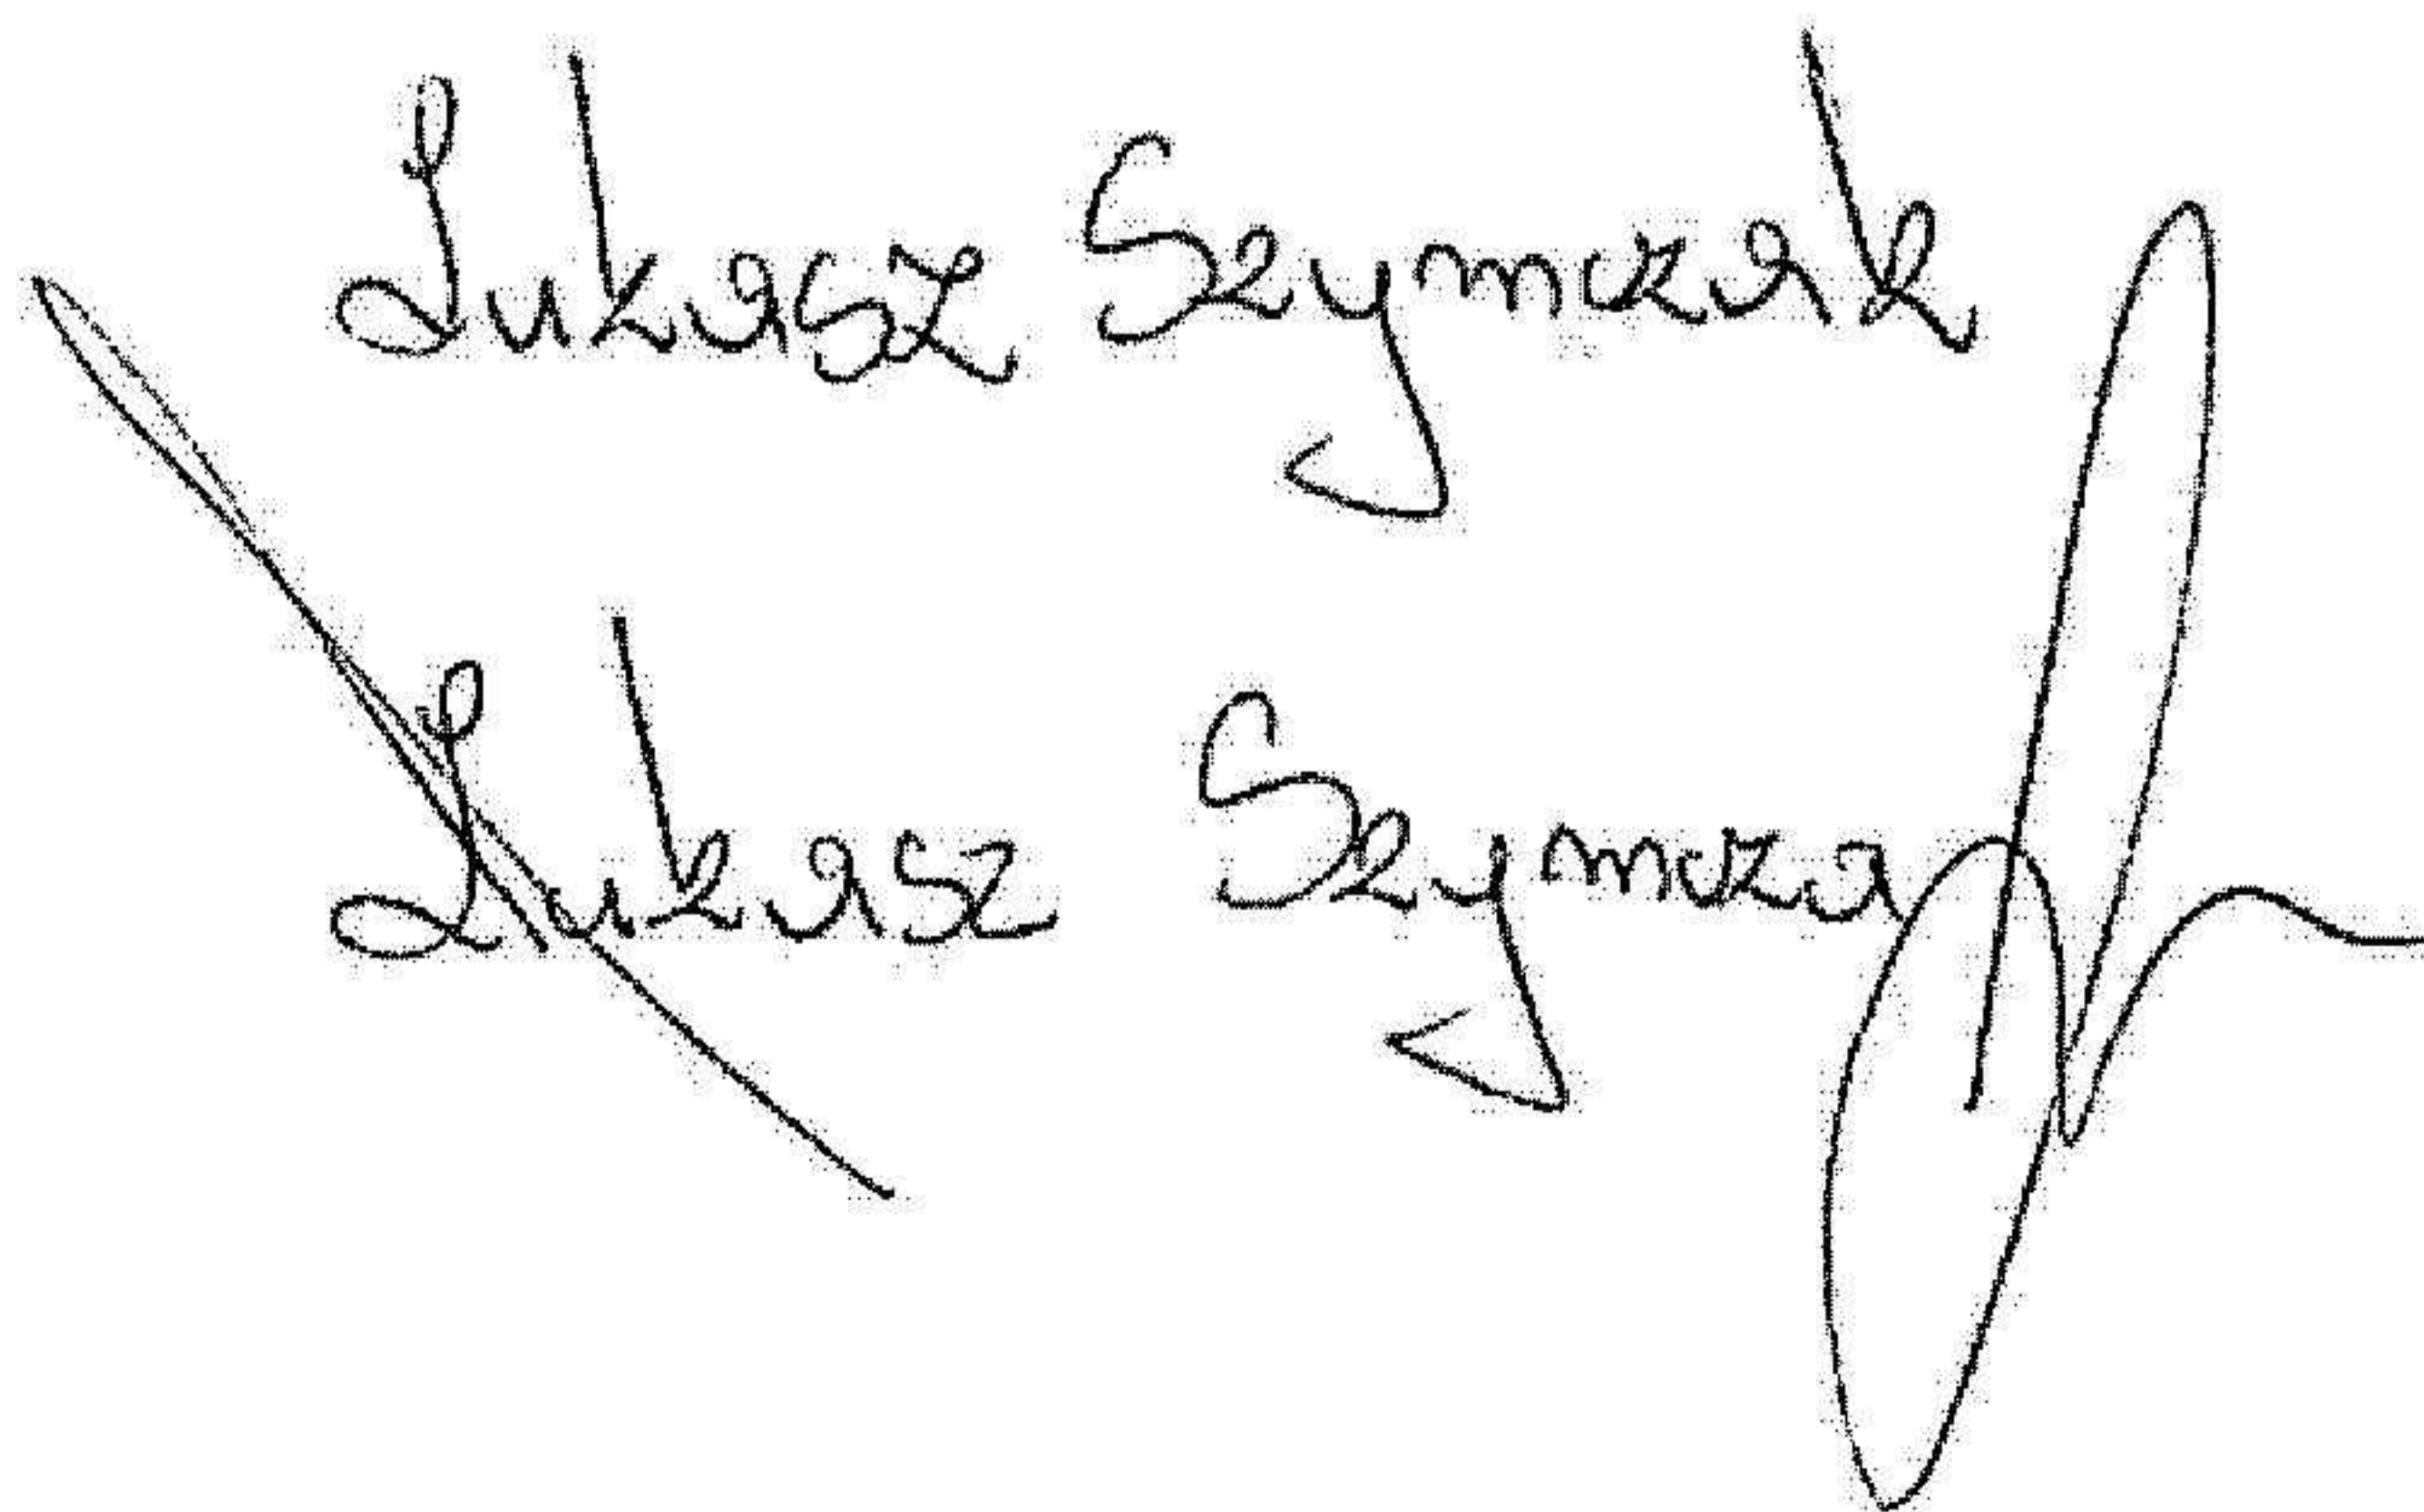 Lukasz Szymczak
Lukasz Szymcza